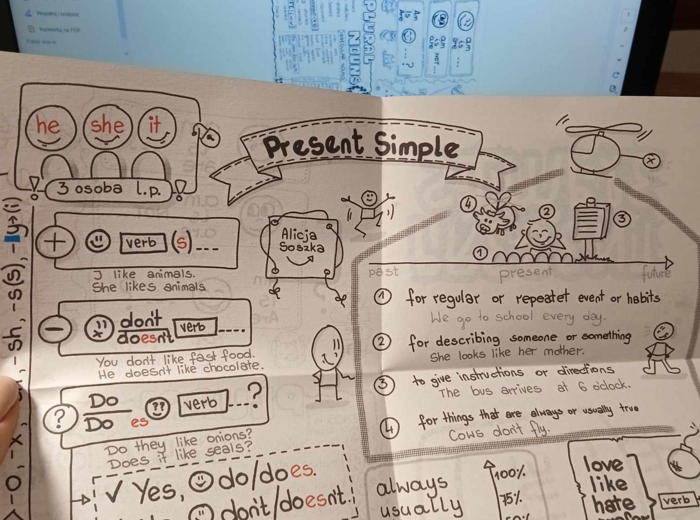 PLURAL
NOUNS
he she it
3 osoba l.p.
Present Simple
Alicja
Soszka
+ verb (s)....
I like animals.
She likes animals
- don't
doesn't verb ....
You dont like fast food.
He doesn't like chocolate.
? Do
Do es verb ...?
Do they like onions?
Does it like seals?
✓ Yes, do/does.
don't/doesn't.
-o, -x, -sh, -s(s), -y→(i)
4 2 3
1
past present future
1 for regular or repeatet event or habits
We go to school every day.
2 for describing someone or something
She looks like her mother.
3 to give instructions or directions
The bus arrives at 6 o'clock.
4 for things that are always or usually true
Cows don't fly.
always 100%
usually 75%
love
like
hate
verb